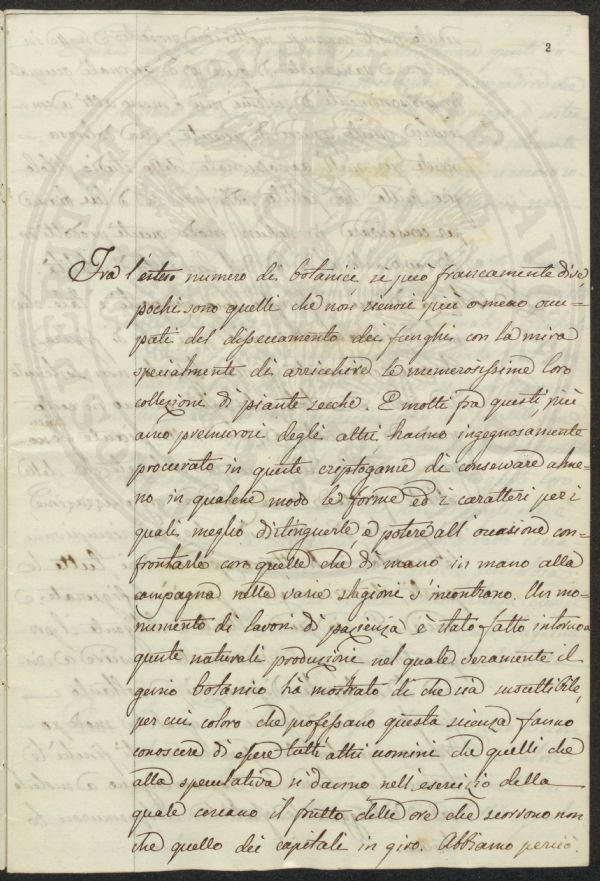 2
Fra l'esteso numero di botanici si può francamente dire
pochi sono quelli che non siensi più o meno occu-
pati del disseccamento dei funghi con la mira
specialmente di arricchire le numerosissime loro
collezioni di piante secche. E molti fra questi, più
anco premurosi degli altri hanno ingegnosamente
procurato in queste criptogame di conservare alme-
no in qualche modo le forme ed i caratteri per i
quali meglio distinguerle e potere all'occasione con-
frontarle con quelle che di mano in mano alla
campagna nelle varie stagioni s'incontrano. Un mo-
numento di lavori di pazienza è stato fatto intorno a
queste naturali produzioni nel quale veramente il
genio botanico ha mostrato di che sia suscettibile,
per cui coloro che professano questa scienza fanno
conoscere di essere tutti altri uomini che quelli che
alla speculativa si danno nell'esercizio della
quale cercano il frutto delle ore che scorrono non
che quello dei capitali in giro. Abbiamo perciò